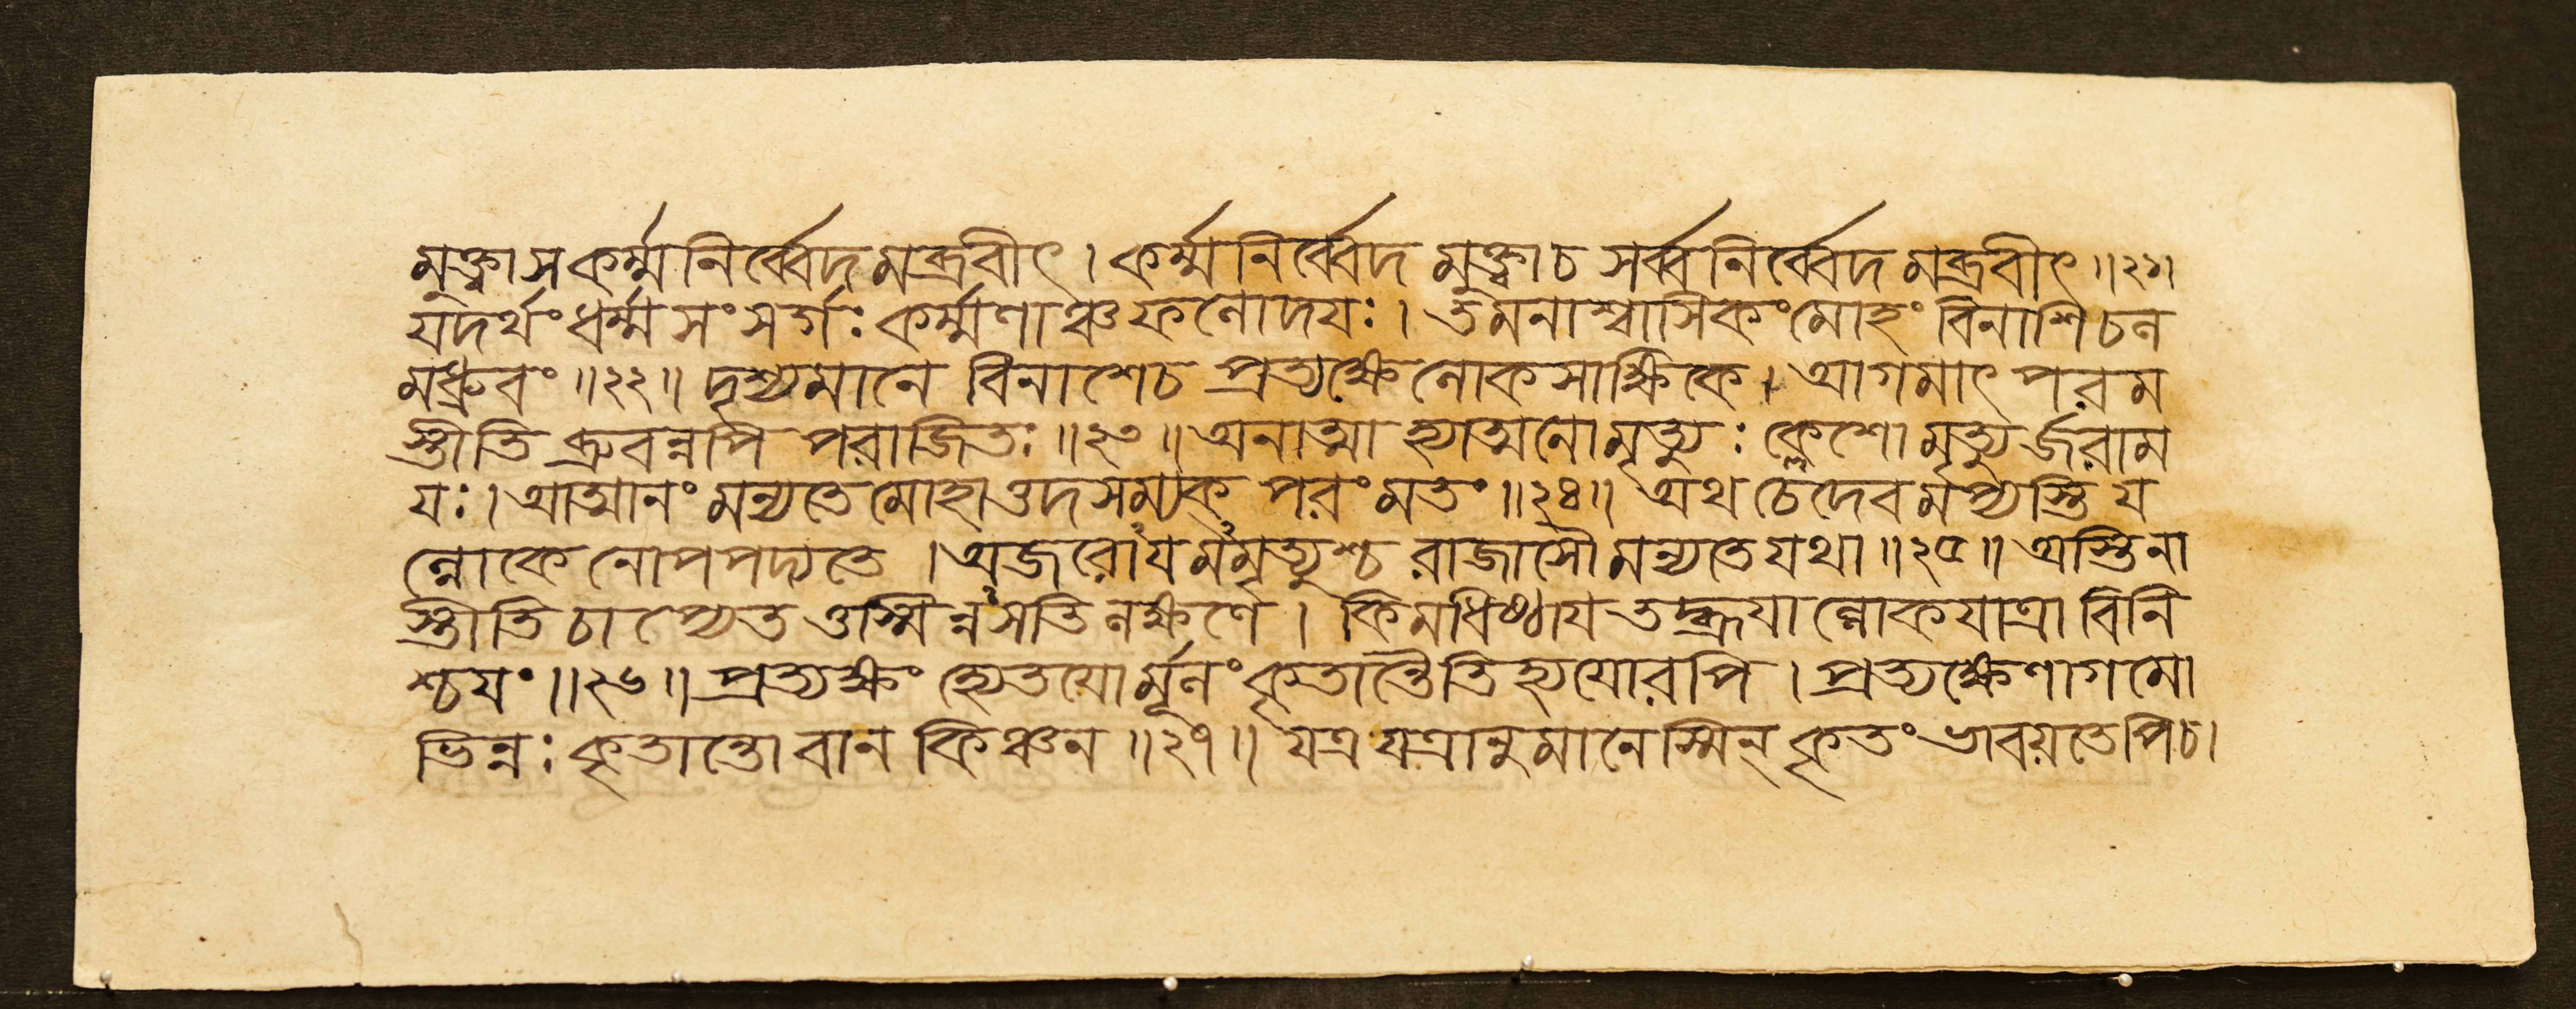 মুক্ত্বা স কর্ম্মনির্ব্বেদমব্রবীৎ । কর্ম্মনির্ব্বেদমুক্ত্বা চ সর্ব্বনির্ব্বেদমব্রবীৎ ॥২১।
যদর্থং ধর্ম্মসংসর্গঃ কর্ম্মণাঞ্চ ফলোদয়ঃ । তমনাশ্বাসিকং মোহং বিনাশি চল
মধ্রুবং ॥২২॥ দৃশ্যমানে বিনাশে চ প্রত্যক্ষে লোকসাক্ষিকে । আগমাৎ পরম
স্তীতি ব্রুবন্নপি পরাজিতঃ ॥২৩॥ অনাত্মা হ্যাত্মনো মৃত্যুঃ ক্লেশো মৃত্যুর্জরাম
য়ঃ । আত্মানং মন্যতে মোহাত্তদসম্যক্ পরং মতং ॥২৪॥ অথ চেদেবমপ্যস্তি য
ল্লোকে নোপপদ্যতে । অজরোঽয়মমৃত্যুশ্চ রাজাসৌ মন্যতে যথা ॥২৫॥ অস্তি না
স্তীতি চাপ্যেতত্তস্মিন্নসতি লক্ষণে । কিমধিষ্ঠায় তদ্ব্রূয়াল্লোকযাত্রাবিনি
শ্চয়ং ॥২৬॥ প্রত্যক্ষং হ্যেতয়োর্মূলং কৃতান্তৈতিহ্যয়োরপি । প্রত্যক্ষেণাগমো
ভিন্নঃ কৃতান্তো বা ন কিঞ্চন ॥২৭॥ যত্র যত্রানুমানেস্মিন্ কৃতং ভাবয়তেপি চ।